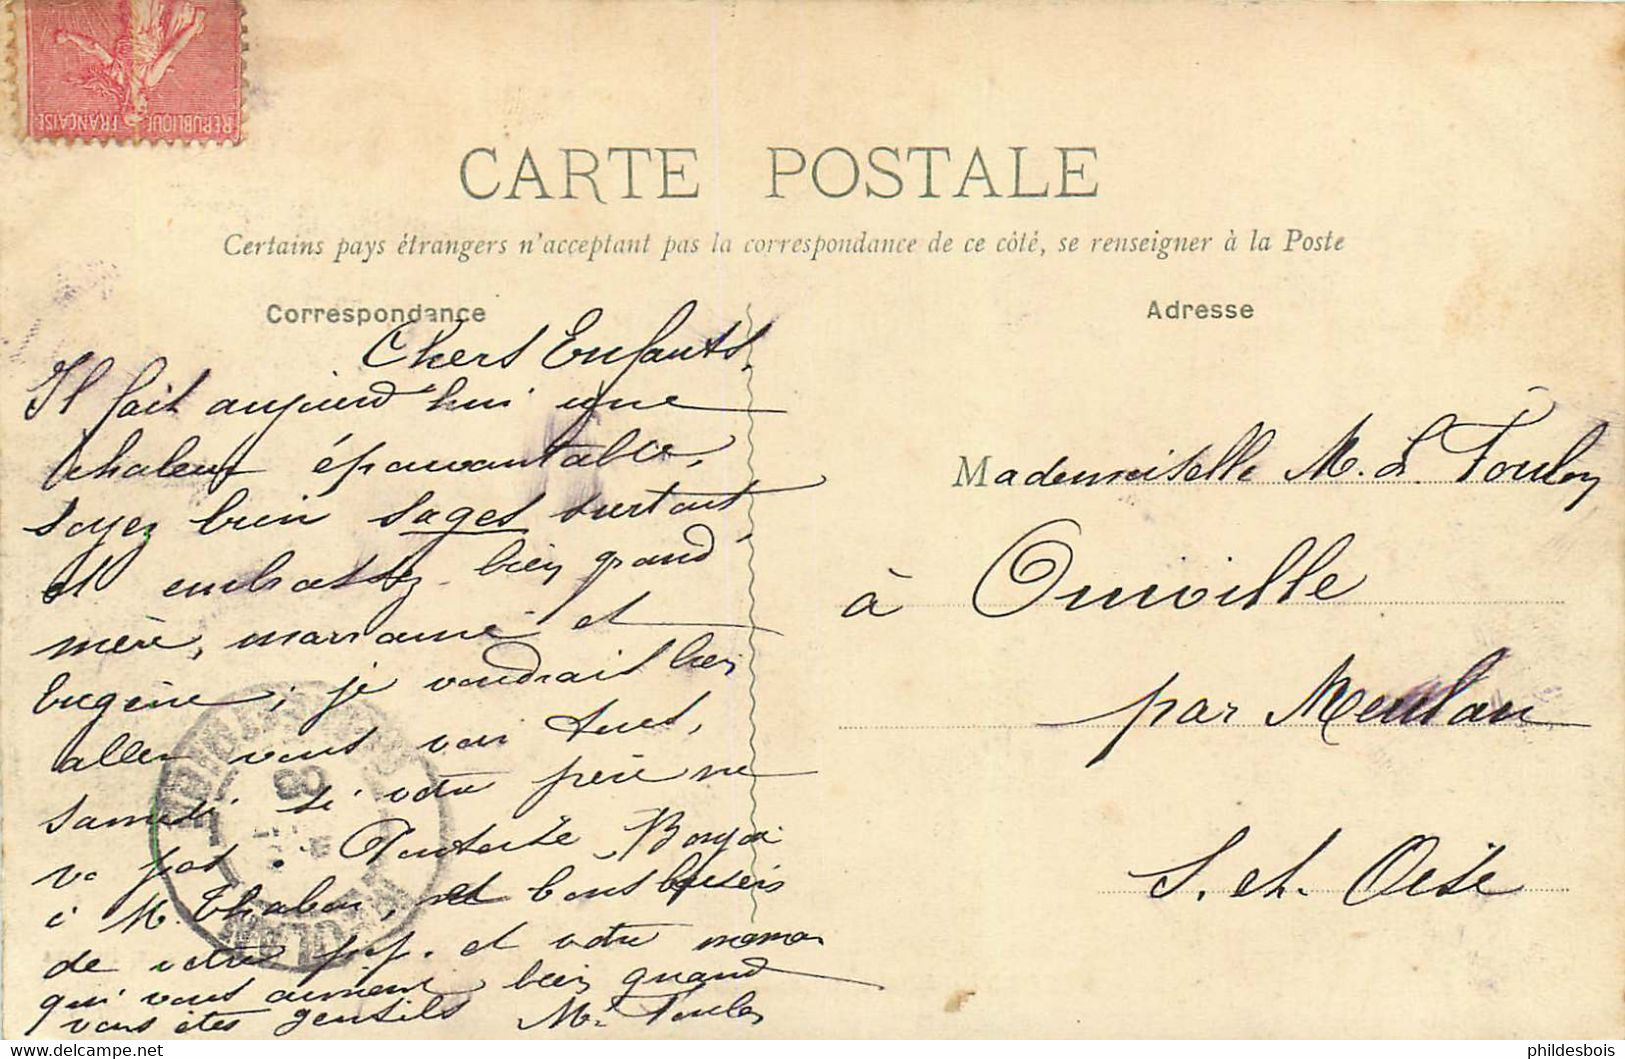 REPUBLIQUE FRANÇAISE
CARTE POSTALE
Certains pays étrangers n'acceptant pas la correspondance de ce côté, se renseigner à la Poste
Correspondance
Chers Enfants,
Il fait aujourd'hui une
chaleur épouvantable,
soyez bien sages surtout
et embrassez bien grand
mère, marraine et
Eugène, je voudrais bien
aller vous voir tous,
samedi si votre père ne
va pas.
à M. et bons baisers
de votre et votre maman
qui vous aiment bien quand
vous êtes gentils M. Toulon
MEULAN
Adresse
Mademoiselle M. L. Toulon
à Oinville
par Meulan
S. et Oise
phildesbois
https://www.delcampe.net